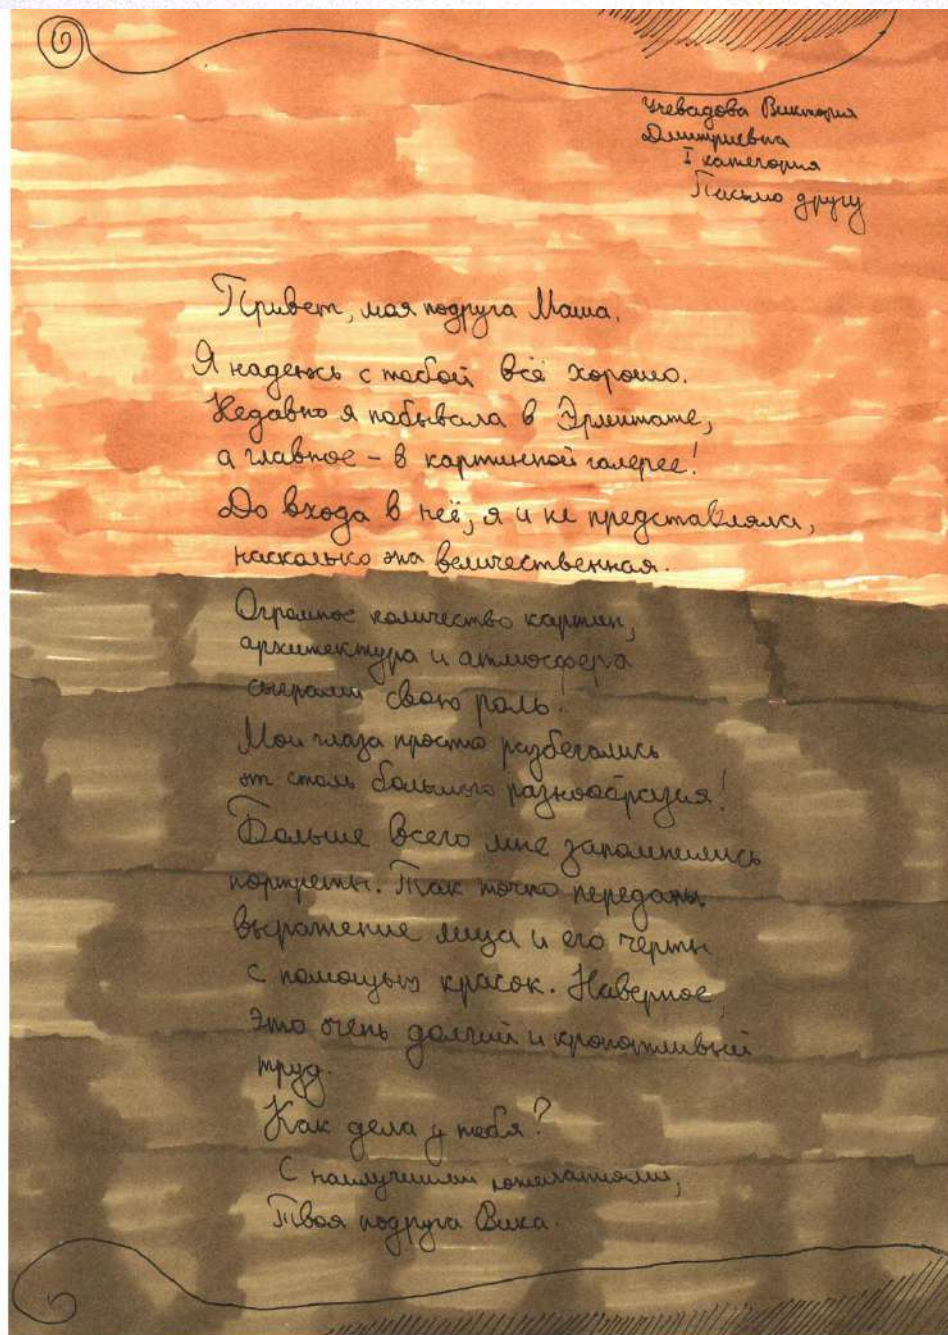 Виктория
Дмитриевна
I категория
Письмо другу
Привет, моя подруга Маша,
Я надеюсь с тобой всё хорошо.
Недавно я побывала в Эрмитаже,
а главное – в картинной галерее!
До входа в неё, я и не представляла,
насколько она величественная.
Огромное количество картин,
архитектура и атмосфера
сыграли свою роль!
Мои глаза просто разбегались
от столь большого разнообразия!
Больше всего мне запомнились
портреты. Так точно переданы
выражение лица и его черты
с помощью красок. Наверное,
это очень долгий и кропотливый
труд.
Как дела у тебя?
С наилучшими пожеланиями,
Твоя подруга Вика.